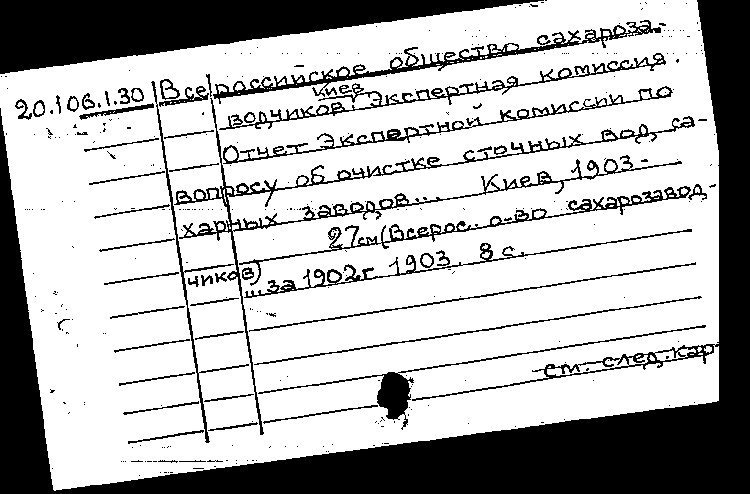 20.106.1.30 Всероссийское общество сахароза-
Киев
водчиков. Экспертная комиссия.
Отчет Экспертной комиссии по
вопросу об очистке сточных вод, са-
харных заводов... Киев, 1903-
27см (Всерос. о-во сахарозавод-
чиков)
...за 1902г 1903. 8 с.
см. след. кар